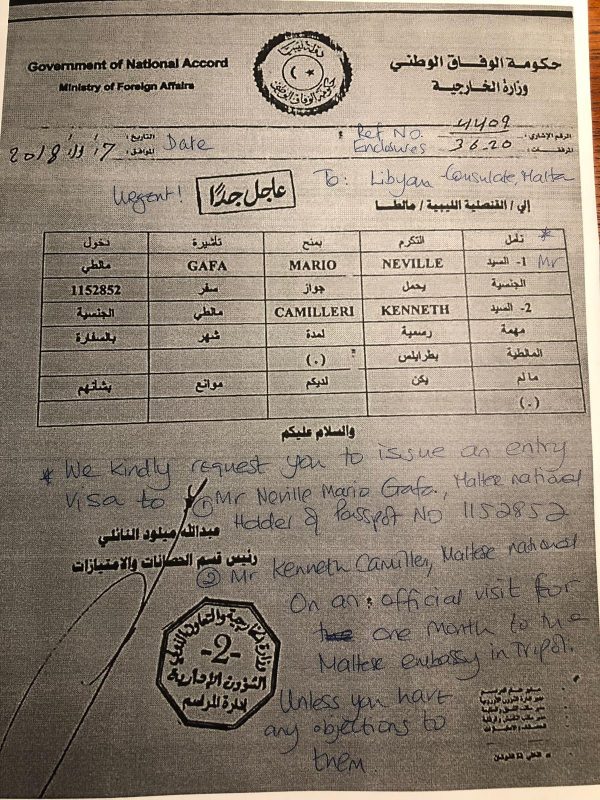 Government of National Accord
Ministry of Foreign Affairs
حكومة الوفاق الوطني
وزارة الخارجية
Ref No. 4409 الرقم الإشاري:
Enclosures 36.20 المرفقات:
التاريخ: Date
الموافق:
Urgent! عاجل جدًا
To: Libyan Consulate, Malta
إلي / القنصلية الليبية / مالطـا
نأمل التكرم بمنح تأشيرة دخول *
1- السيد Mr NEVILLE MARIO GAFA مالطي
الجنسية يحمل جواز سفر 1152852
2- السيد KENNETH CAMILLERI مالطي الجنسية
مهمة رسمية لمدة شهر بالسفارة
المالطية بطرابلس (.)
ما لم يكن لديكم موانع بشأنهم
(.)
والسلام عليكم
* We kindly request you to issue an entry
visa to 1) Mr Neville Mario Gafa, Maltese national
Holder of Passport No 1152852
عبدالله ميلود
رئيس قسم الحصانات والامتيازات
2) Mr Kenneth Camilleri, Maltese national
On an official visit for
one month to the
Maltese embassy in Tripoli.
Unless you have
any objections to
them.
-2-
الشؤون الإدارية
إدارة المراسم